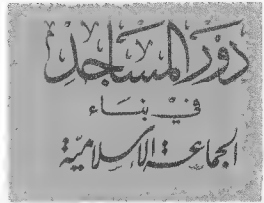 دَوْرُ المَسَاجِدِ
فِي بِنَاء
الجَمَاعَةِ الإِسْلَامِيَّة